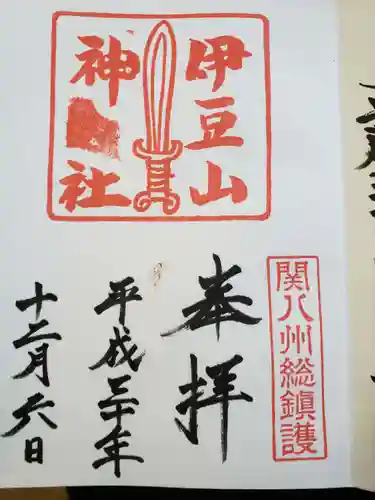 関八州総鎮護
伊豆山
神社
奉拝
平成三十年
十二月六日